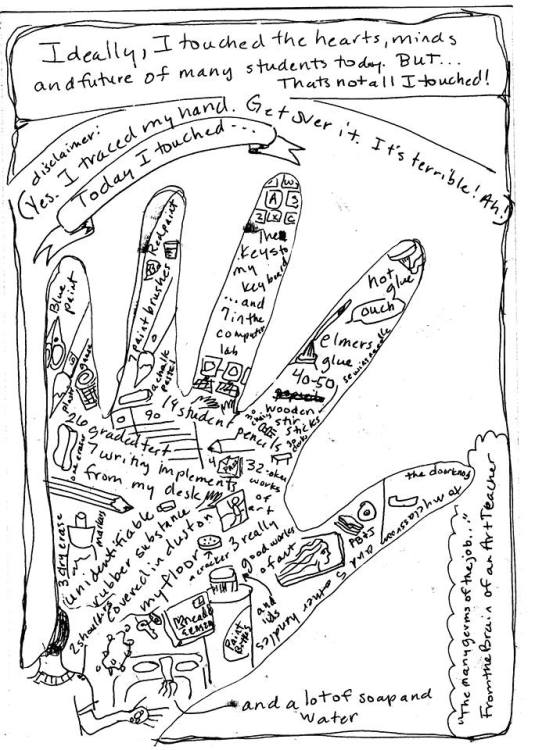 Ideally, I touched the hearts, minds
and future of many students today. BUT...
Thats not all I touched!
disclaimer:
(Yes. I traced my hand. Get over it. It's terrible! Ah!)
Today I touched...
Blue Paint
plant
7 paint brushes
Red paint
chalk pastel
W
A S
Z X C
The keys to
my
keyboard
...and
7 in the
computer
lab
hot glue
ouch
elmers
glue
40-50
wooden
stir
sticks
sewing needle
90
14 student
pencils
26 graded test
7 writing implements
from my desk
one eraser
432-oku
works
of
art
3 dry erase
markers
unidentifiable
rubber substance
covered in dust on
my floor
a cracker
3 really
good works
of art
and
lids
Paint
Bottles
2 shoulders
and 5 other handles
FOOD
the doorknob
to my classroom
and a lot of soap and
water
"The many germs of the job..."
From the Brain of an Art Teacher